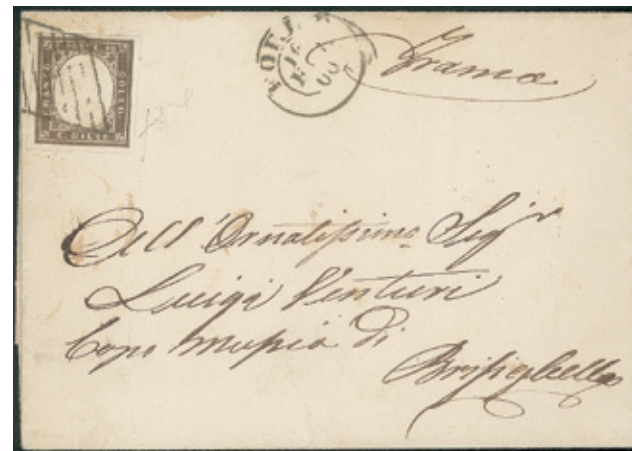 Franca
All'Ornatissimo Sigr
Luigi Venturi
Capo Musica di
Brisighella